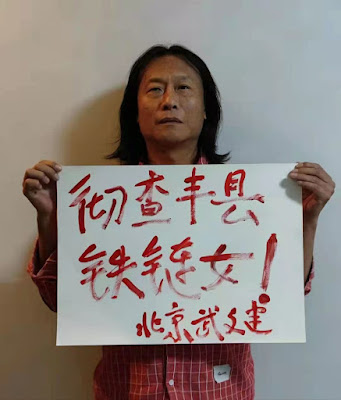 彻查丰县
铁链女！
北京武文建